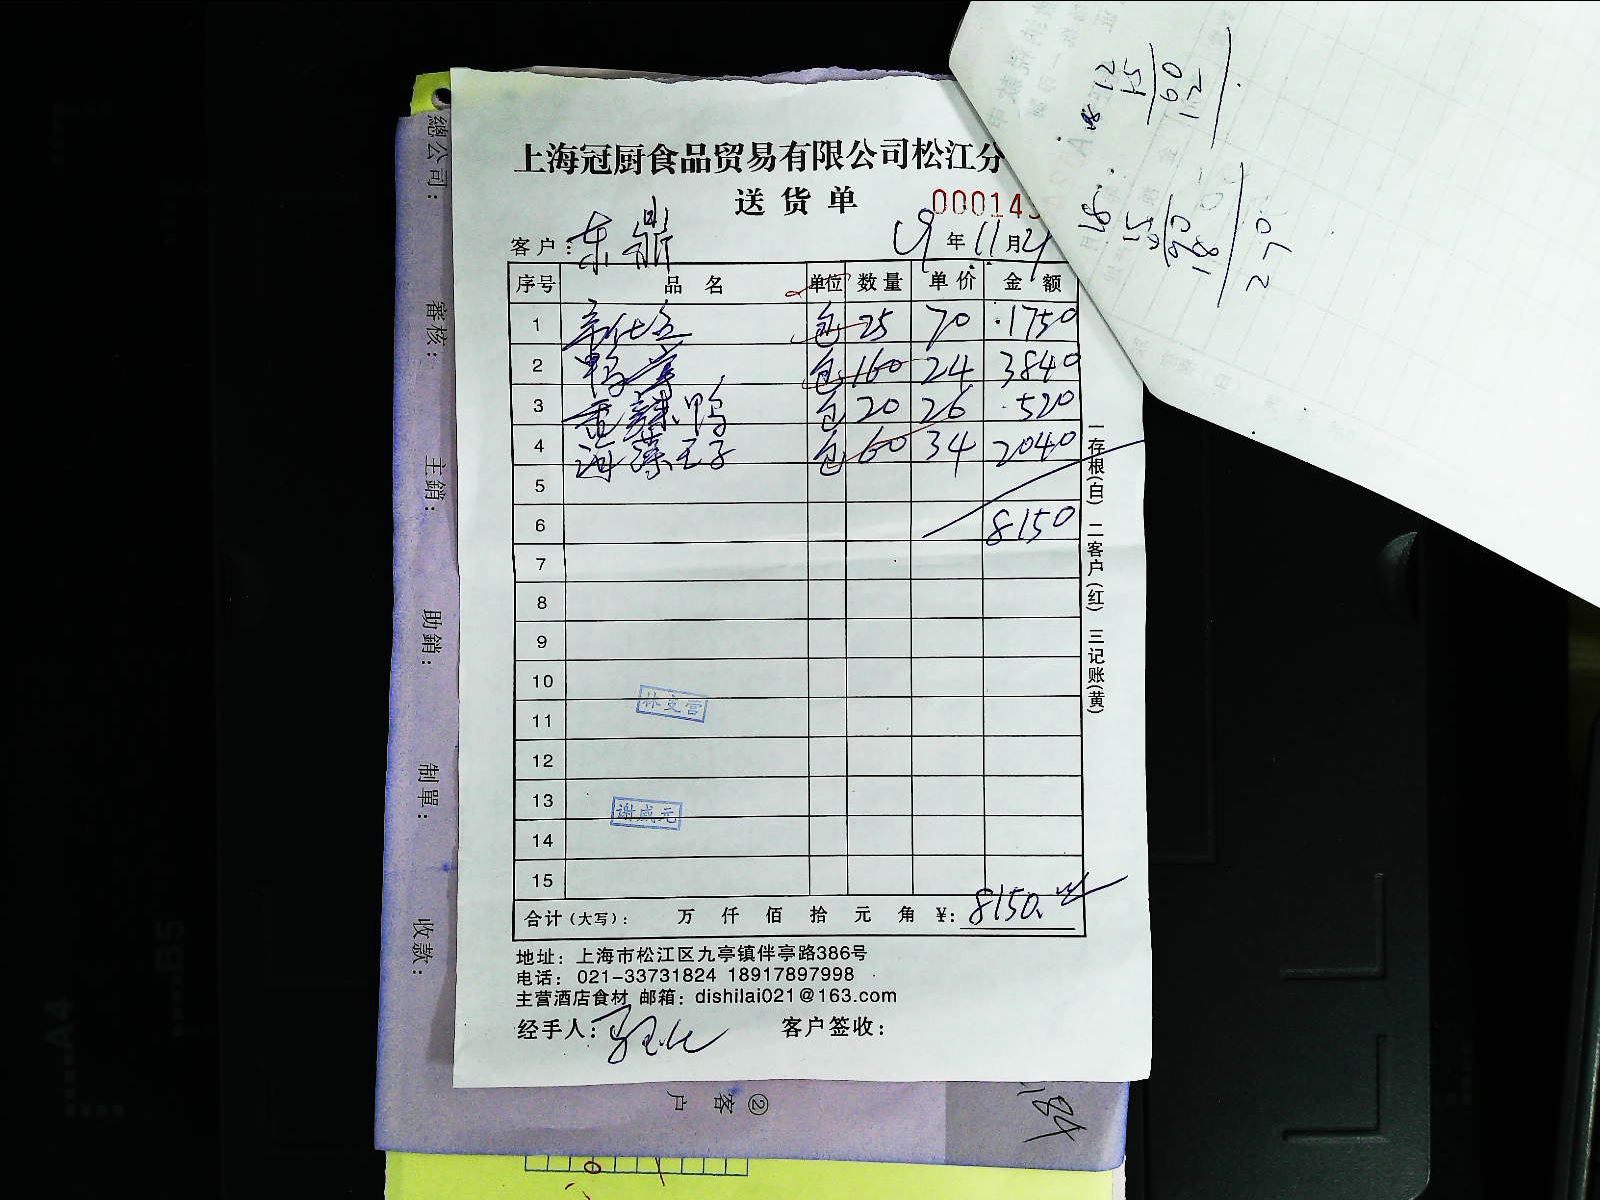 上海冠厨食品贸易有限公司松江分
送货单
00014
客户：东鼎
19年11月21
序号 品名 单位 数量 单价 金额
1 包 25 70 1750
2 鸭掌 包 160 24 3840
3 香辣鸭 包 20 26 520
4 海藻王子 包 60 34 2040
5
6 8150
7
8
9
10
11
12
13
14
15
谢咸元
合计（大写）： 万 仟 佰 拾 元 角 ¥：8150.
地址：上海市松江区九亭镇伴亭路386号
电话：021-33731824 18917897998
主营酒店食材 邮箱：dishilai021@163.com
经手人：
客户签收：
一存根(白) 二客户(红) 三记账(黄)
總公司：
審核：
主銷：
助銷：
制單：
收款：
②客户
184